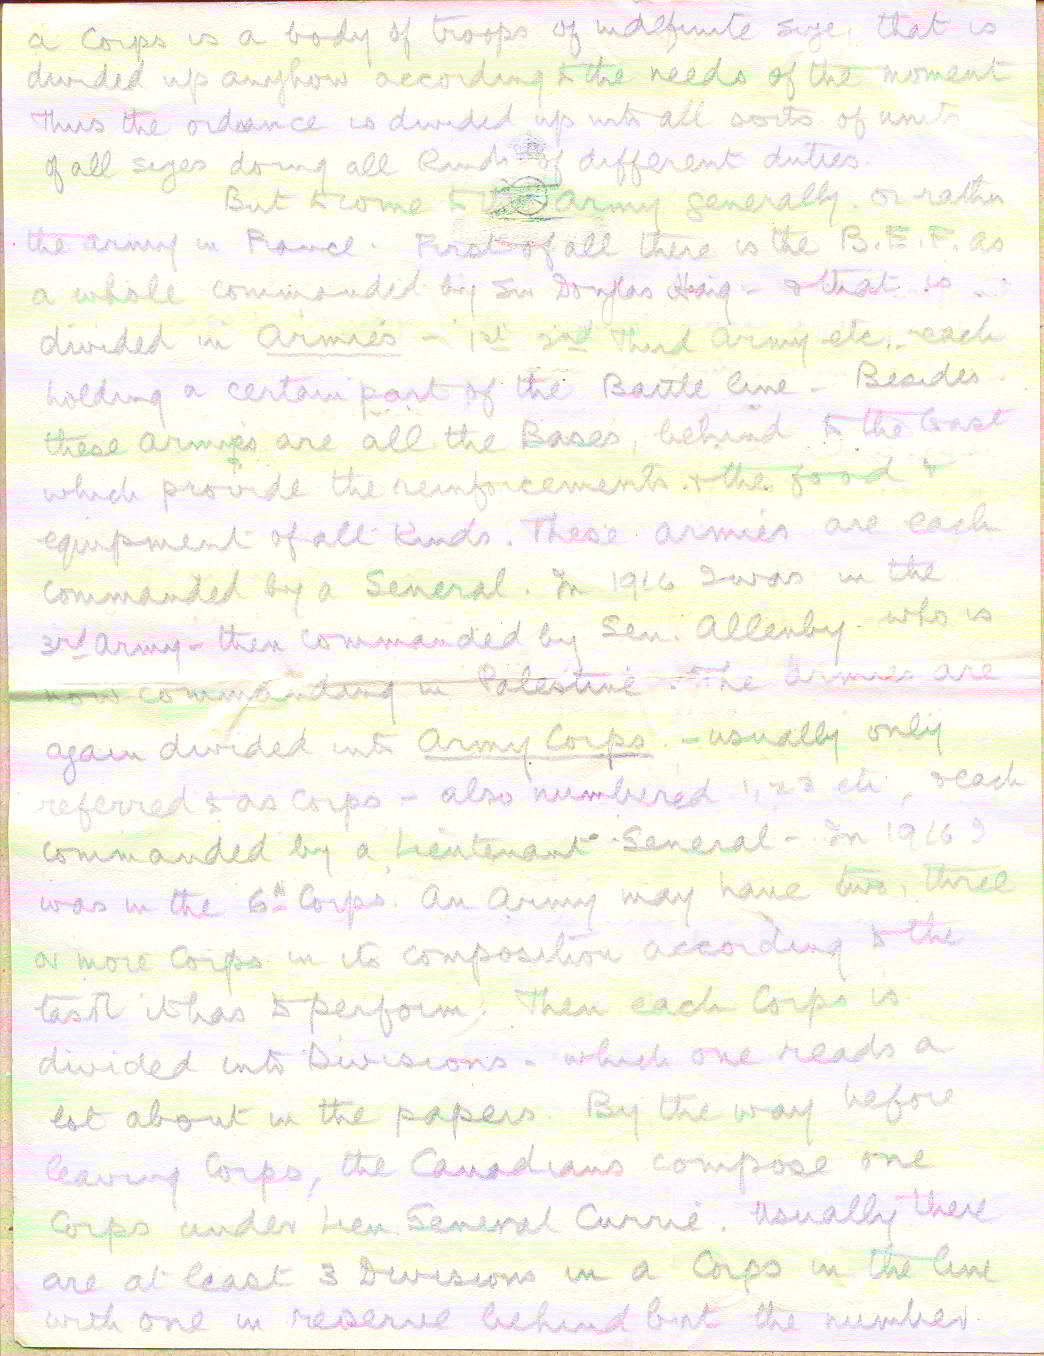 a Corps is a body of troops of indefinite size, that is
divided up anyhow according to the needs of the moment
Thus the ordnance is divided up into all sorts of units
of all sizes doing all kinds of different duties.
But to come to the Army generally. or rather
the army in France. First of all there is the B.E.F. as
a whole commanded by Sir Douglas Haig - & that is
divided in Armies - 1st 2nd Third Army etc.. each
holding a certain part of the Battle line - Besides
these Armies are all the Bases, behind to the Coast
which provide the reinforcements & the food &
equipment of all kinds. These armies are each
commanded by a General. In 1916 I was in the
3rd Army - then commanded by Gen. Allenby who is
now commanding in Palestine. The armies are
again divided into Army Corps. - usually only
referred to as Corps - also numbered 1, 2 & etc, & each
commanded by a Lieutenant-General - In 1916 I
was in the 6th Corps. An Army may have two, three
or more Corps in its composition according to the
task it has to perform. Then each Corps is
divided into Divisions - which one reads a
lot about in the papers. By the way before
leaving Corps, the Canadians compose one
Corps under Lieu General Currie. Usually there
are at least 3 Divisions in a Corps in the line
with one in reserve behind but the number